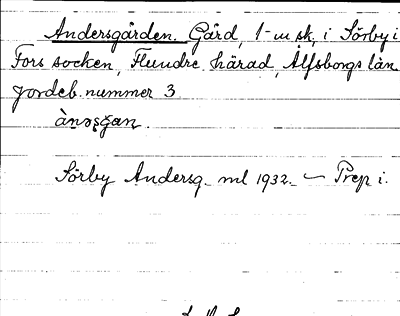 Andersgården. Gård, 1-m sk, i Sörby i
Fors socken, Flundre härad, Älfsborgs län
Jordeb. nummer 3
Sörby Andersg. ml 1932. — Prep i.